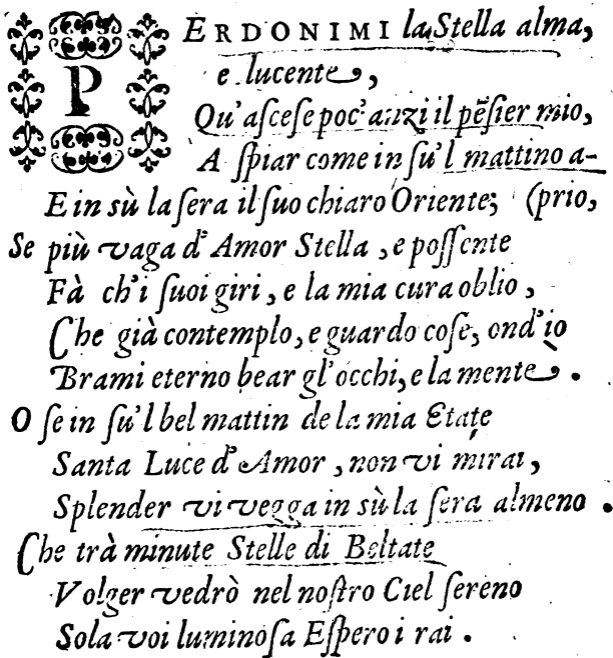 PERDONIMI la Stella alma,
e lucente,
Qu'aſceſe poc'anzi il pẽſier mio,
A ſpiar come in ſu'l mattino a-
E in sù la ſera il ſuo chiaro Oriente; (prio,
Se più vaga d'Amor Stella, e poſſente
Fà ch'i ſuoi giri, e la mia cura oblio,
Che già contemplo, e guardo coſe, ond'io
Brami eterno bear gl'occhi, e la mente.
O ſe in ſu'l bel mattin de la mia Etate
Santa Luce d'Amor, non vi mirai,
Splender vi vegga in sù la ſera almeno.
Che trà minute Stelle di Beltate
Volger vedrò nel noſtro Ciel ſereno
Sola voi luminoſa Eſpero i rai.